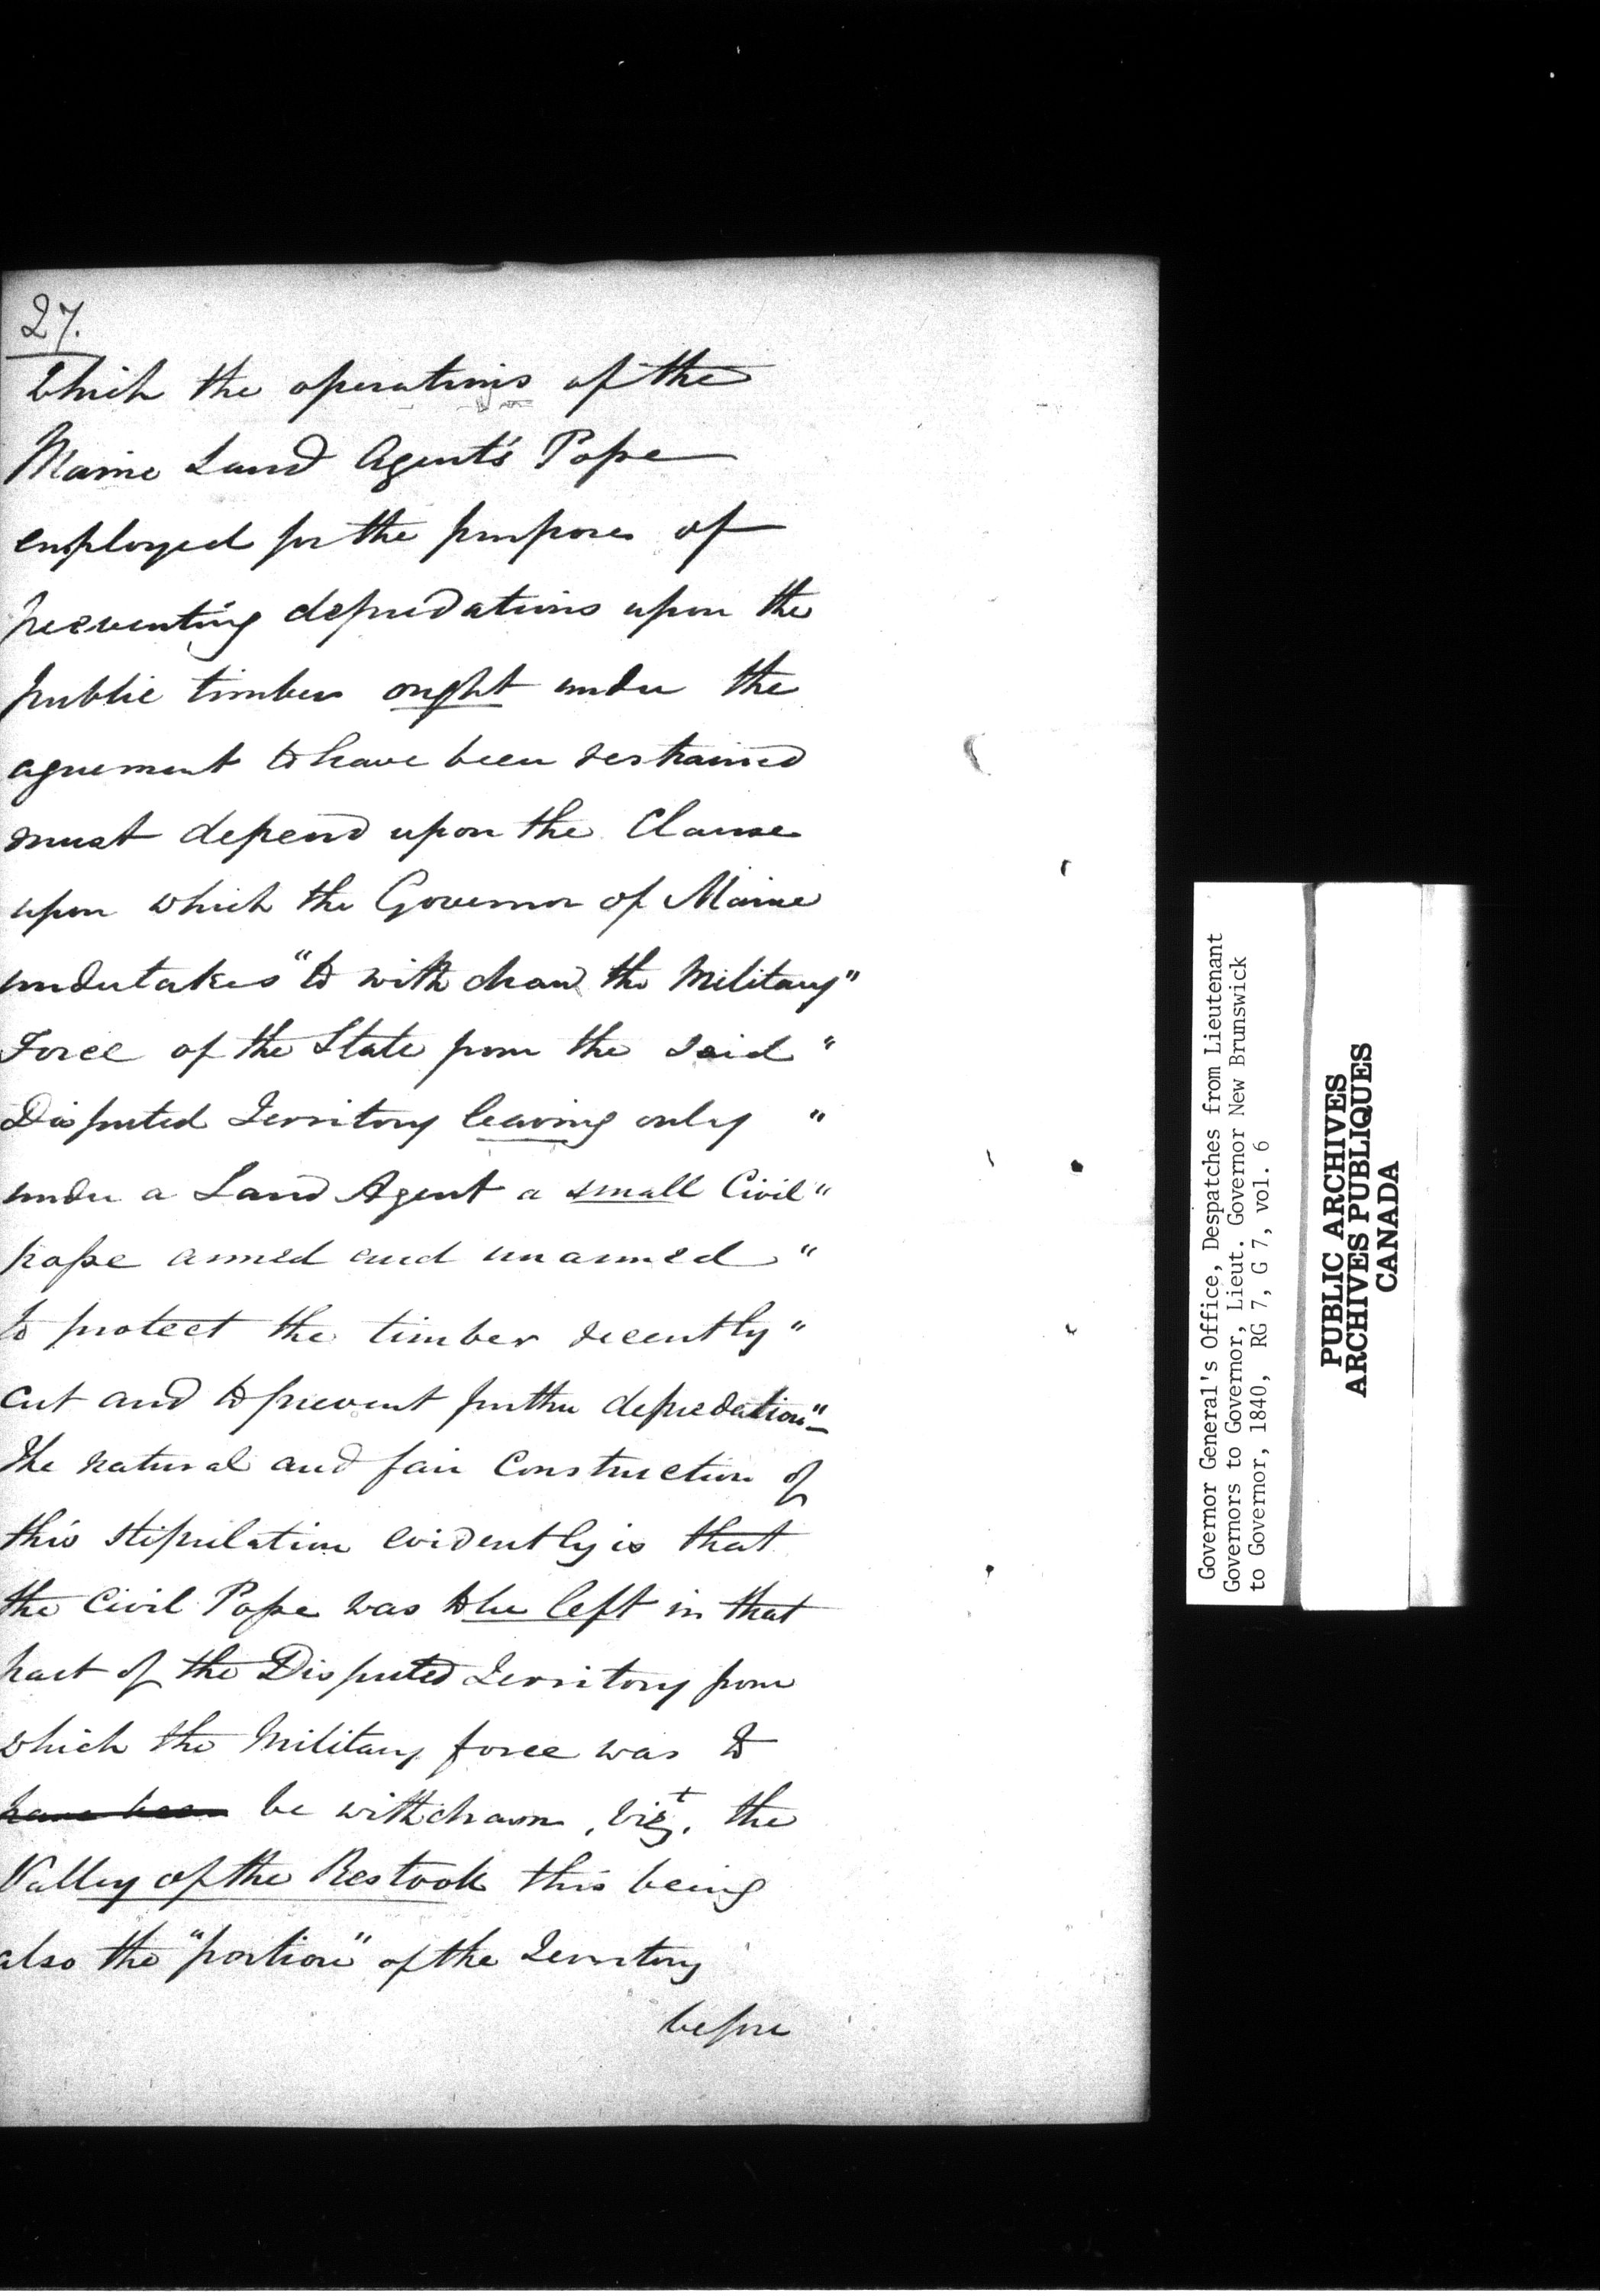 27.
which the operations of the
Maine Land Agent's Posse
employed for the purposes of
preventing depredations upon the
public timber ought under the
agreement to have been restrained
must depend upon the Clause
upon which the Governor of Maine
undertakes "to withdraw the Military"
Force of the State from the said "
Disputed Territory leaving only "
under a Land Agent a small Civil "
posse armed and unarmed "
to protect the timber recently "
cut and to prevent further depredation"_
The natural and fair construction of
this stipulation evidently is that
the Civil Posse was to be left in that
part of the Disputed Territory from
which the Military force was to
have been be withdrawn, vizt. the
Valley of the Restook this being
also the "portion" of the Territory
before
Governor General's Office, Despatches from Lieutenant
Governors to Governor, Lieut. Governor New Brunswick
to Governor, 1840, RG 7, G 7, vol. 6
PUBLIC ARCHIVES
ARCHIVES PUBLIQUES
CANADA